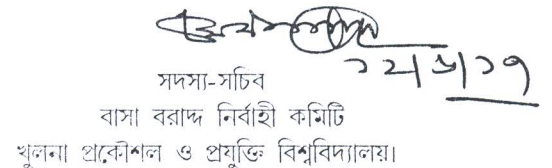 ২২|৬|১৭
সদস্য-সচিব
বাসা বরাদ্দ নির্বাহী কমিটি
খুলনা প্রকৌশল ও প্রযুক্তি বিশ্ববিদ্যালয়।